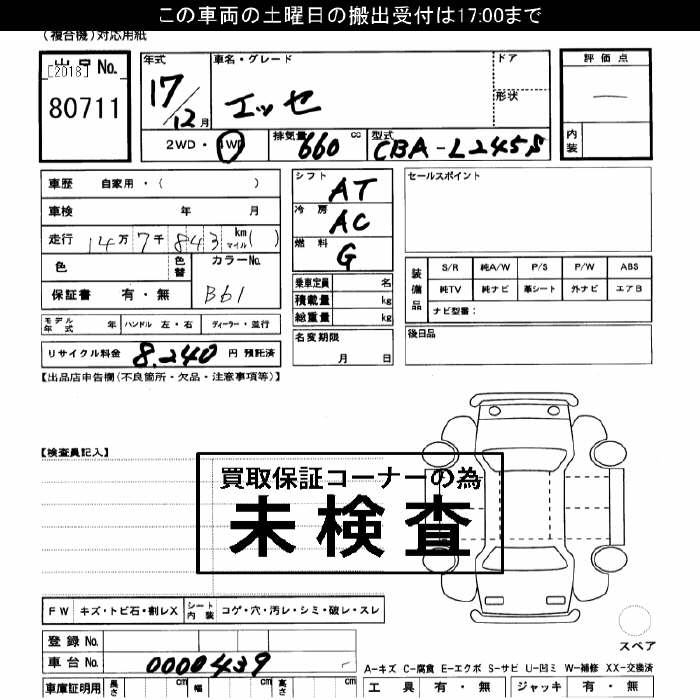 この車両の土曜日の搬出受付は17:00まで
(複合機)対応用紙
出品No.
[2018]
80711
年式
17/12月
車名・グレード
エッセ
ドア
形状
評価点
—
内装
2WD・4WD
排気量 660 cc
型式 CBA-L245S
車歴 自家用・( )
車検 年 月
走行 14万7千843 km マイル( )
色
色替
カラーNo.
B61
保証書 有・無
モデル年式 年 ハンドル 左・右 ディーラー・並行
リサイクル料金 8,240 円 預託済
シフト AT
冷房 AC
燃料 G
乗車定員 名
積載量 kg
総重量 kg
名変期限
月 日
セールスポイント
装備品
S/R 純A/W P/S P/W ABS
純TV 純ナビ 革シート 外ナビ エアB
ナビ型番:
後日品
【出品店申告欄(不良箇所・欠品・注意事項等)】
【検査員記入】
買取保証コーナーの為
未検査
FW キズ・トビ石・割レX シート内装 コゲ・穴・汚レ・シミ・破レ・スレ
登録No.
車台No. 0000439
スペア
A-キズ C-腐食 E-エクボ S-サビ U-凹ミ W-補修 XX-交換済
車庫証明用 長さ cm 幅 cm 高さ cm
工具 有・無 ジャッキ 有・無